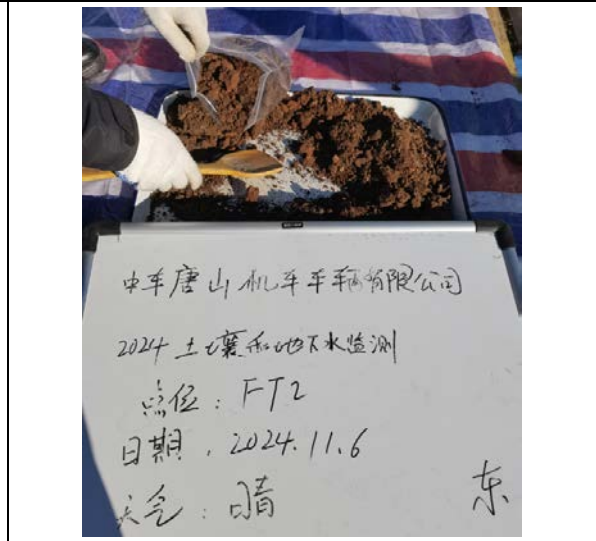 中车唐山机车车辆有限公司
2024 土壤和地下水监测
点位：FT2
日期：2024.11.6
天气：晴
东